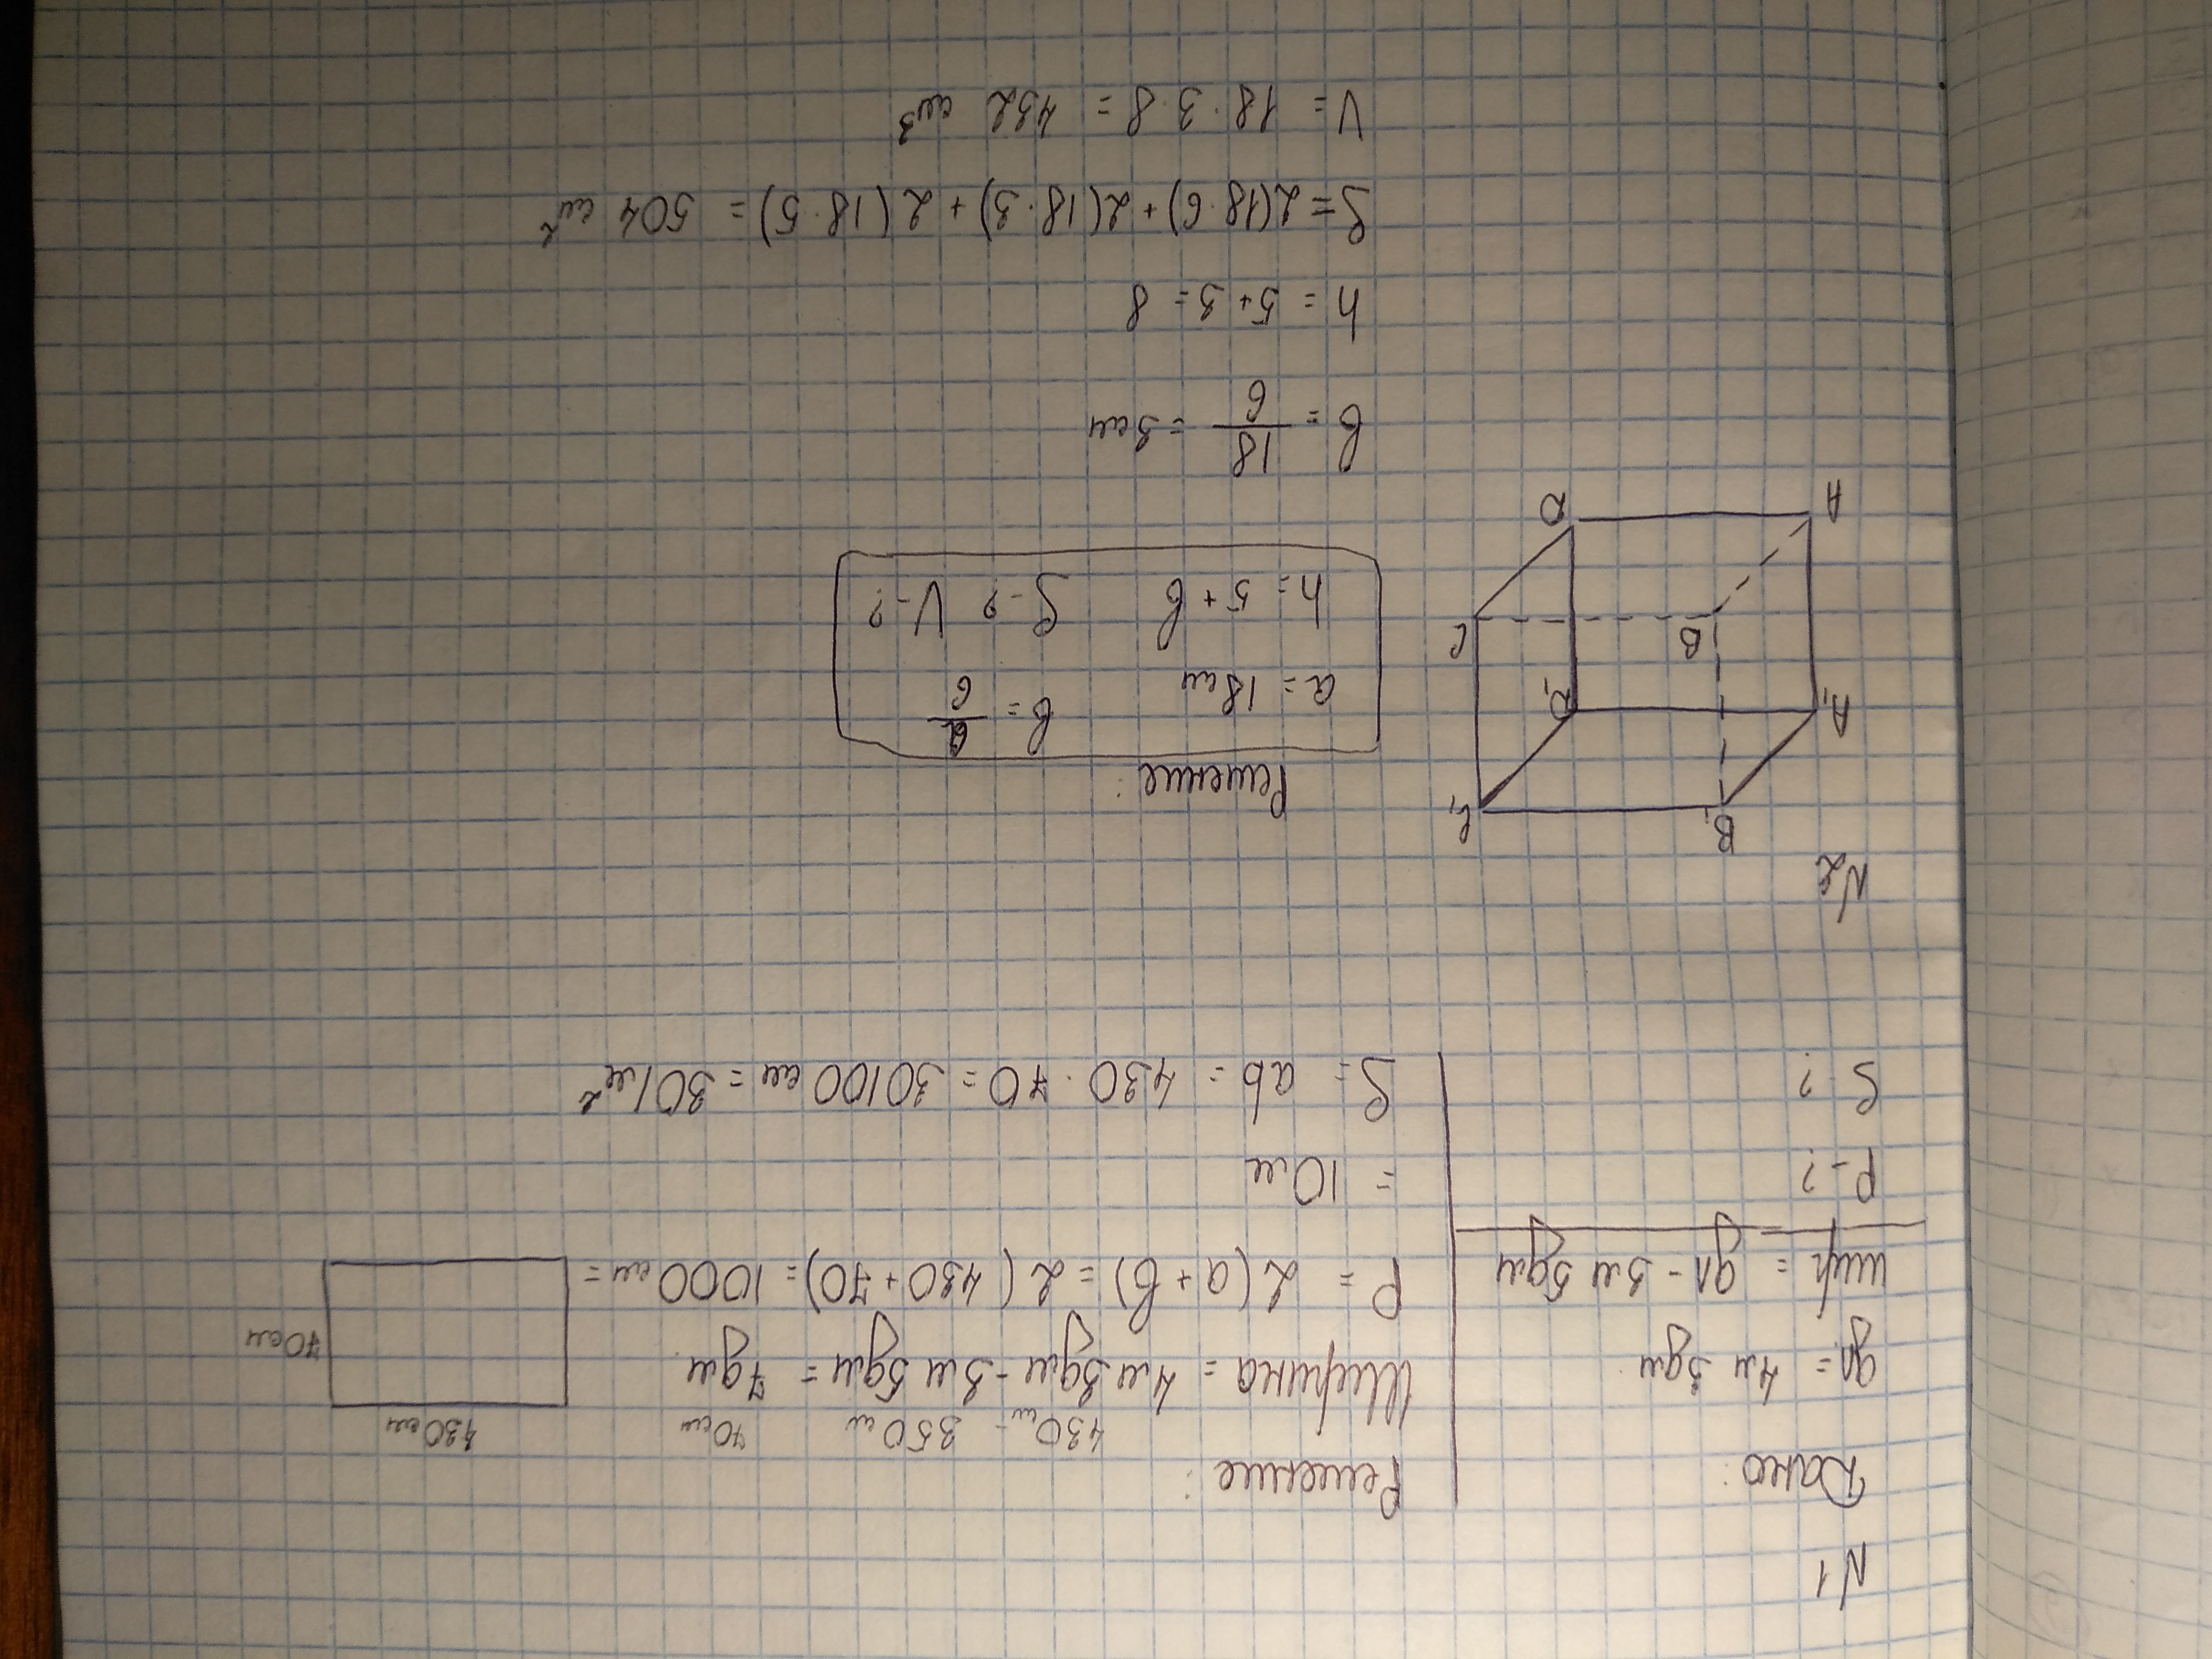 N1
Дано:
дл = 4м 3дм
шир = дл - 3м 5дм
P - ?
S - ?
Решение:
430см - 350см 70см
Ширина = 4м 3дм - 3м 5дм = 7дм
P = 2(a + b) = 2(430 + 70) = 1000см =
= 10м
S = ab = 430 · 70 = 30100см = 301м²
430см
70см
N2
B₁ C₁
A₁ D₁
B C
A D
Решение:
a = 18см b = a/6
h = 5 + b S - ? V - ?
b = 18/6 = 3см
h = 5 + 3 = 8
S = 2(18 · 6) + 2(18 · 3) + 2(18 · 5) = 504 см²
V = 18 · 3 · 8 = 432 см³